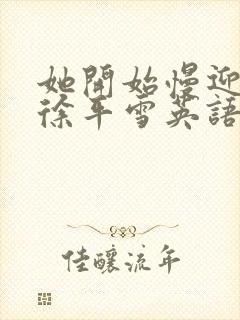 她開始慢迎
徐平雪英語
佳釀流年